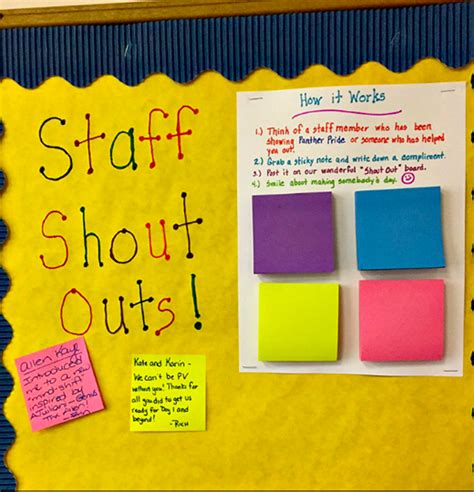 Staff
Shout
Outs!
How it Works
1.) Think of a staff member who has been
showing Panther Pride or someone who has helped
you out!
2.) Grab a sticky note and write down a compliment.
3.) Post it on our wonderful "Shout Out" board.
4.) Smile about making somebody's day.
Allen Kaye
Introduced
me to a new
mindshift
inspired by
Kate and Karin -
We can't be PV
without you! Thanks for
all you did to get us
ready for Day 1 and
beyond!
- Rich